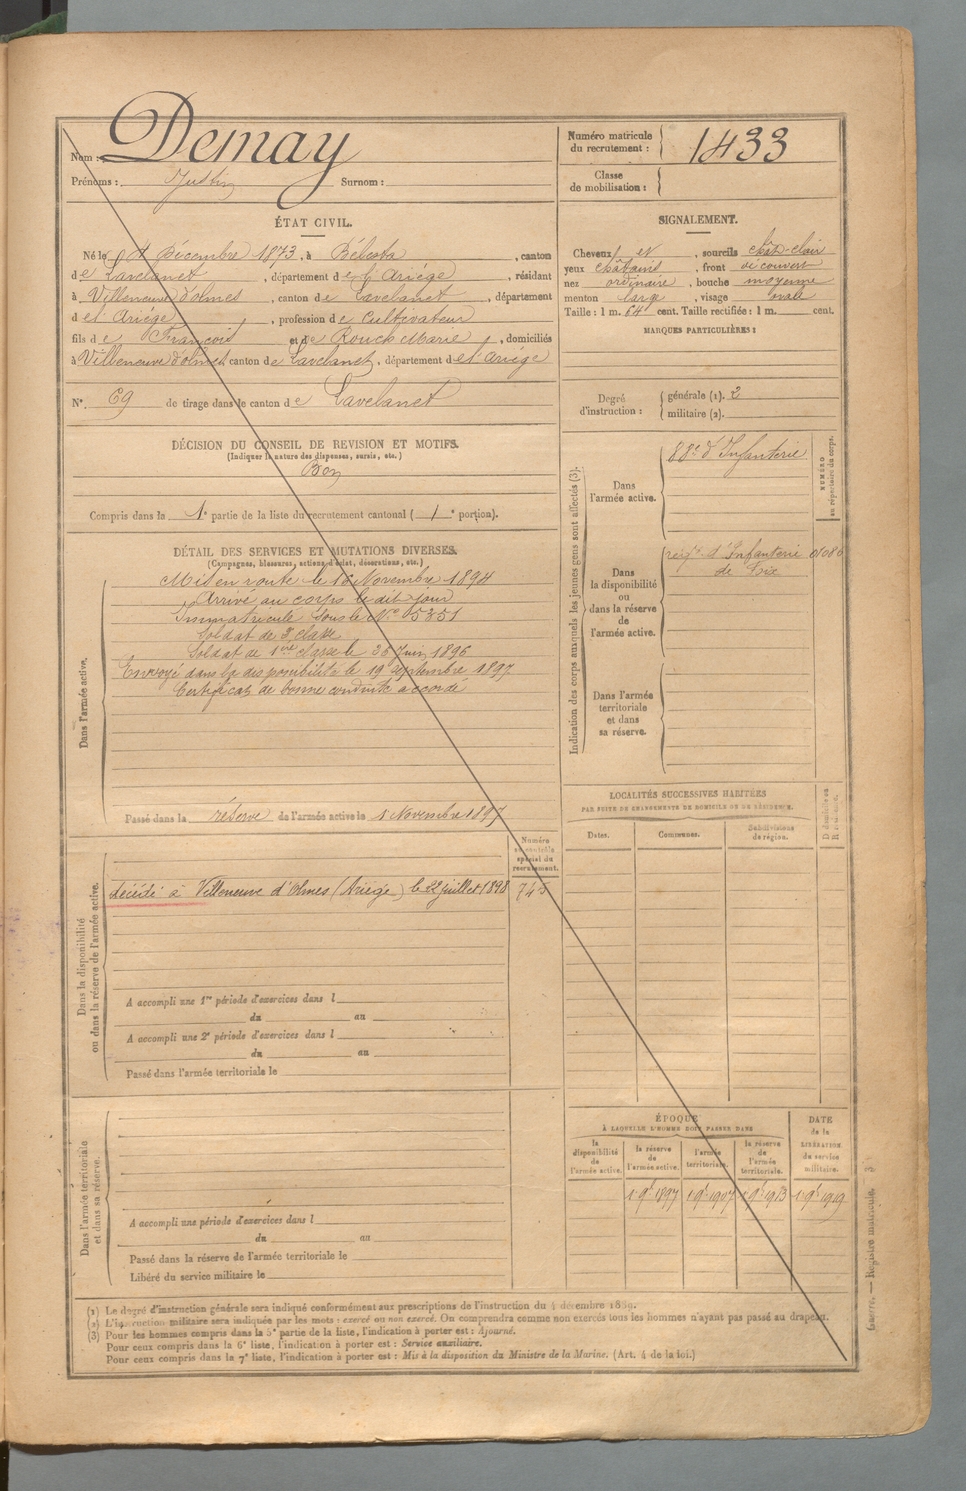 Nom : Demay
Prénoms : Justin Surnom :
Numéro matricule du recrutement : 1433
Classe de mobilisation :
ÉTAT CIVIL.
Né le 4 Décembre 1873, à Bélesta, canton
de Lavelanet, département de l'Ariège, résidant
à Villeneuve d'olmes, canton de Lavelanet, département
de l'Ariège, profession de Cultivateur
fils de François et de Rouch Marie, domiciliés
à Villeneuve d'olmes canton de Lavelanet, département de l'Ariège
N° 69 de tirage dans le canton de Lavelanet
DÉCISION DU CONSEIL DE REVISION ET MOTIFS.
(Indiquer la nature des dispenses, sursis, etc.)
Bon
Compris dans la 1e partie de la liste du recrutement cantonal (1e portion).
SIGNALEMENT.
Cheveux et, sourcils chât-clair
yeux châtains, front découvert
nez ordinaire, bouche moyenne
menton large, visage ovale
Taille : 1 m. 64 cent. Taille rectifiée : 1 m. cent.
MARQUES PARTICULIÈRES :
Degré d'instruction : générale (1). 2
militaire (2).
DÉTAIL DES SERVICES ET MUTATIONS DIVERSES.
(Campagnes, blessures, actions d'éclat, décorations, etc.)
Dans l'armée active.
Mis en route le 16 Novembre 1894
Arrivé au corps le dit jour
Immatriculé sous le N° 5351
Soldat de 2e classe
Soldat de 1ere classe le Juin 1896
Envoyé dans la disponibilité le 19 Septembre 1897
Certificat de bonne conduite accordé
Passé dans la réserve de l'armée active le 1 Novembre 1897
Indication des corps auxquels les jeunes gens sont affectés (3).
NUMÉRO au répertoire du corps.
Dans l'armée active.
88e d'Infanterie
Dans la disponibilité ou dans la réserve de l'armée active.
régt d'Infanterie
de Foix
Dans l'armée territoriale et dans sa réserve.
LOCALITÉS SUCCESSIVES HABITÉES
PAR SUITE DE CHANGEMENTS DE DOMICILE OU DE RÉSIDENCE.
Dates. Communes. Subdivisions de région.
Dans la disponibilité ou dans la réserve de l'armée active.
Numéro au contrôle spécial du recrutement.
décédé à Villeneuve d'Olmes (Ariège) le 22 juillet 1898 745
A accompli une 1re période d'exercices dans l
du au
A accompli une 2e période d'exercices dans l
du au
Passé dans l'armée territoriale le
Dans l'armée territoriale et dans sa réserve.
A accompli une période d'exercices dans l
du au
Passé dans la réserve de l'armée territoriale le
Libéré du service militaire le
ÉPOQUE
À LAQUELLE L'HOMME DOIT PASSER DANS
la disponibilité de l'armée active.
la réserve de l'armée active.
l'armée territoriale.
la réserve de l'armée territoriale.
DATE de la LIBÉRATION du service militaire.
1 9b 1897 1 9b 1907 1 9b 1913 1 9b 1919
(1) Le degré d'instruction générale sera indiqué conformément aux prescriptions de l'instruction du 4 décembre 1889.
(2) L'instruction militaire sera indiquée par les mots : exercé ou non exercé. On comprendra comme non exercés tous les hommes n'ayant pas passé au drapeau.
(3) Pour les hommes compris dans la 5e partie de la liste, l'indication à porter est : Ajourné.
Pour ceux compris dans la 6e liste, l'indication à porter est : Service auxiliaire.
Pour ceux compris dans la 7e liste, l'indication à porter est : Mis à la disposition du Ministre de la Marine. (Art. 4 de la loi.)
Guerre. — Registre matricule.